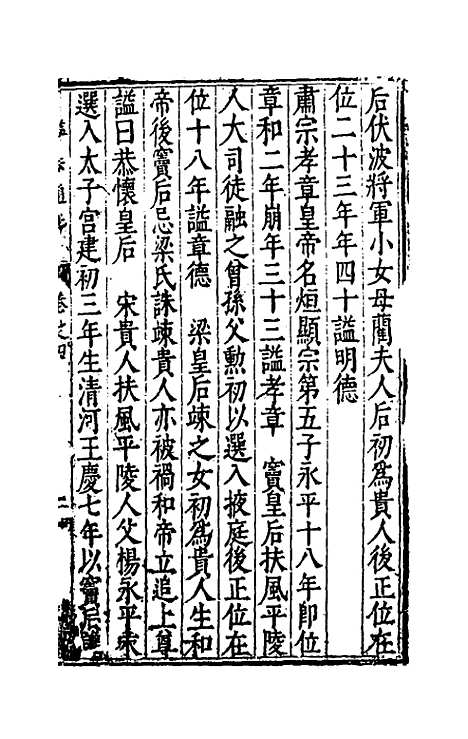 后伏波將軍小女母藺夫人后初爲貴人後正位在
位二十三年年四十謚明德
肅宗孝章皇帝名烜顯宗第五子永平十八年卽位
章和二年崩年三十三謚孝章　竇皇后扶風平陵
人大司徒融之曾孫父勲初以選入掖庭後正位在
位十八年謚章德　梁皇后竦之女初爲貴人生和
帝後竇后忌梁氏誅竦貴人亦被禍和帝立追上尊
謚曰恭懷皇后　宋貴人扶風平陵人父楊永平末
選入太子宫建初三年生清河王慶七年以竇后
卷之四